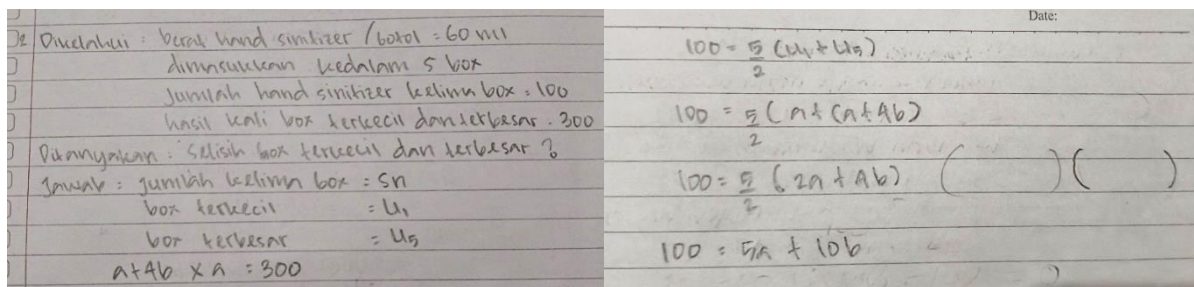 2 Diketahui : berat hand sinitizer / botol = 60 ml
dimasukkan kedalam 5 box
Jumlah hand sinitizer kelima box = 100
hasil kali box terkecil dan terbesar . 300
Ditanyakan : Selisih box terkecil dan terbesar ?
Jawab : jumlah kelima box = Sn
box terkecil = U₁
box terbesar = U₅
a+4b × a = 300
Date:
100 = 5/2 (U₁ + U₅)
100 = 5/2 (a + (a + 4b)
100 = 5/2 (2a + 4b) ( ) ( )
100 = 5a + 10b